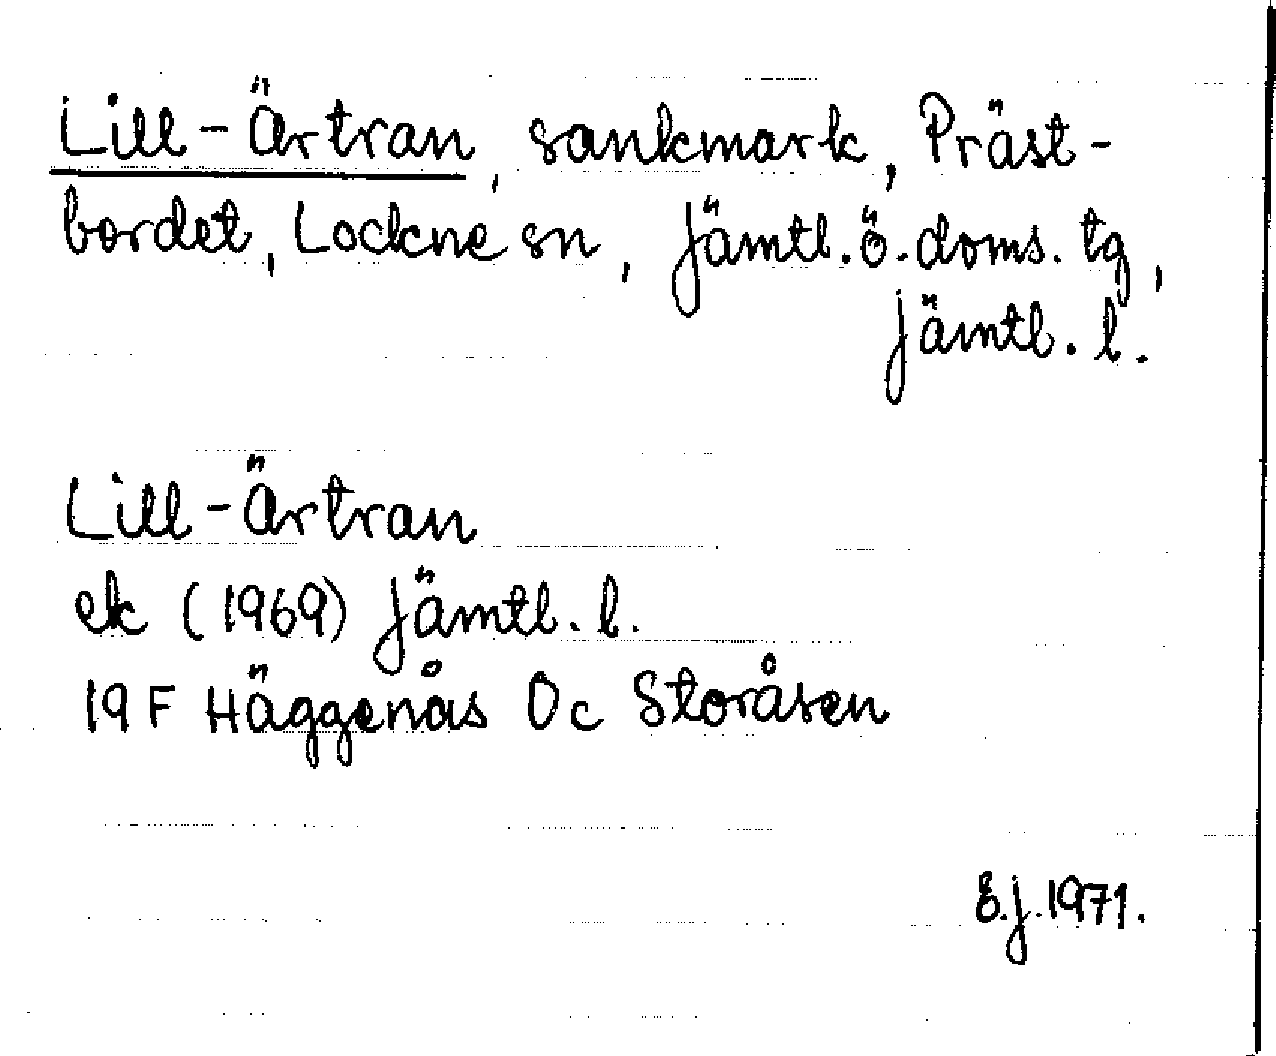 Lill-Ärtran, sankmark, Präst-
bordet, Lockne sn, Jämtl.ö.doms.tg,
Jämtl. l.
Lill-Ärtran
ek (1969) Jämtl. l.
19 F Häggenås 0c Storåsen
Ö.J. 1971.